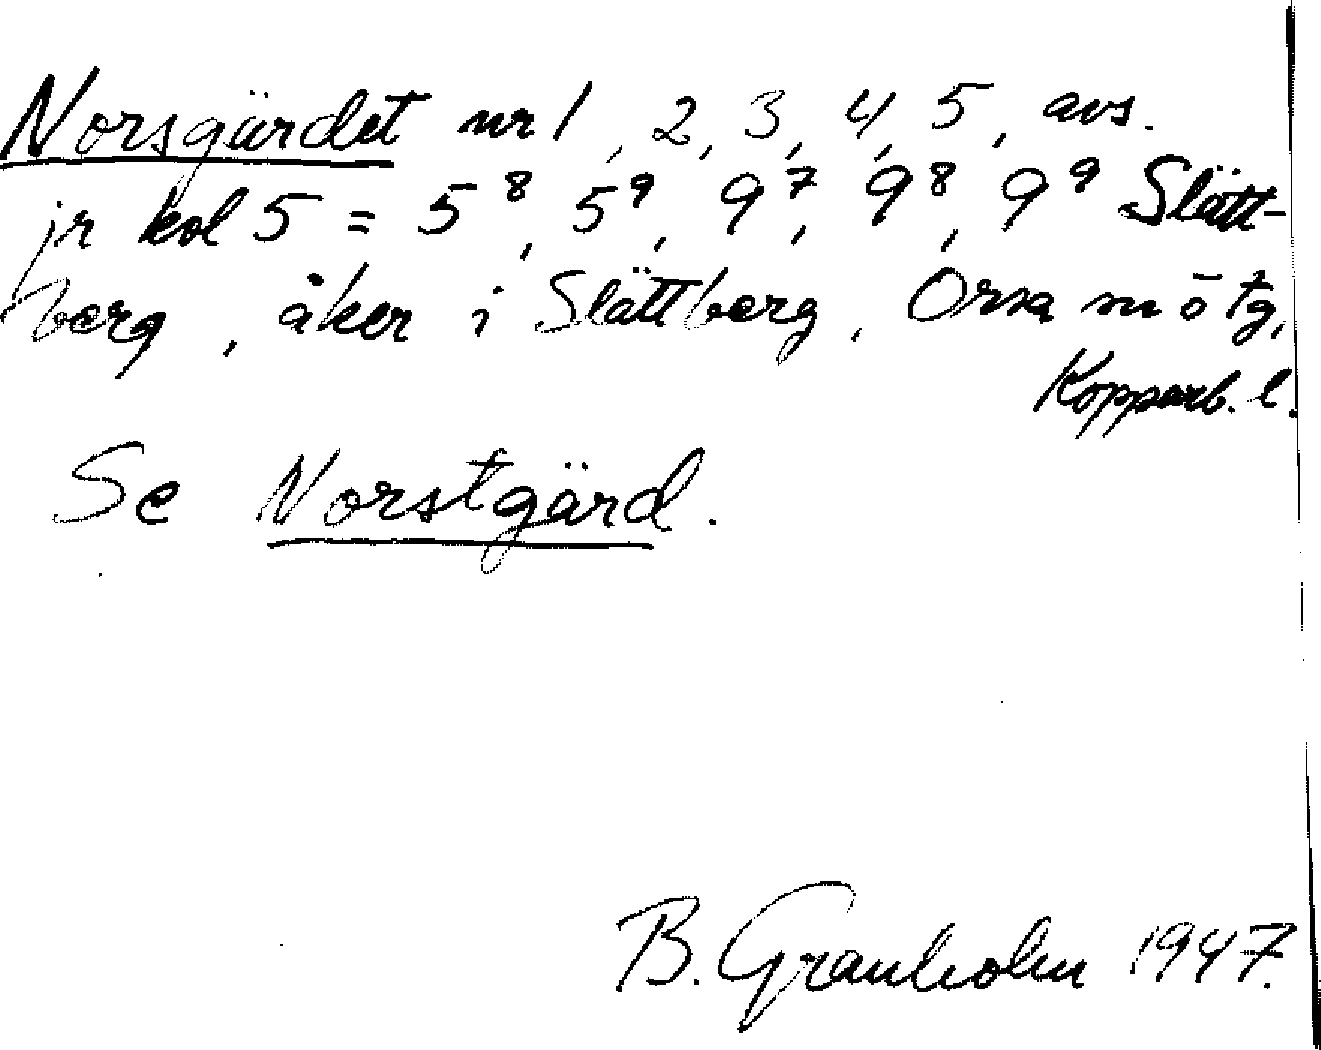 Norsgärdet nr 1, 2, 3, 4, 5, avs.
jr kol 5 = 5⁸, 5⁹, 9⁷, 9⁸, 9⁹ Slätt-
berg, åker i Slättberg, Orsa sn ö tg,
Kopparb. l.
Se Norstgärd.
B. Granholm 1947.